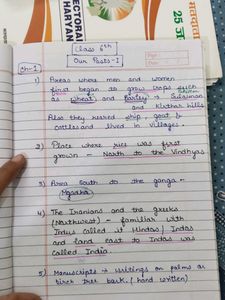 ECTORAL
HARYAN
25 अ
Class 6th
Our Pasts - I
Ch-1
1) Areas where men and women
first began to grow crops such
as wheat and barley → Sulaiman
and Kirthar hills
Also they reared ship, goat &
cattles and lived in villages.
2) Place where rice was first
grown - North to the Vindhyas
3) Area south to the ganga -
Mgadha
4) The Iranians and the greeks
(Northwest) - familiar with
Indus called it Hindos / Indos
and land east to Indus was
called India
5) Manuscripts → Writings on palms or
birch tree bark. (hand written)